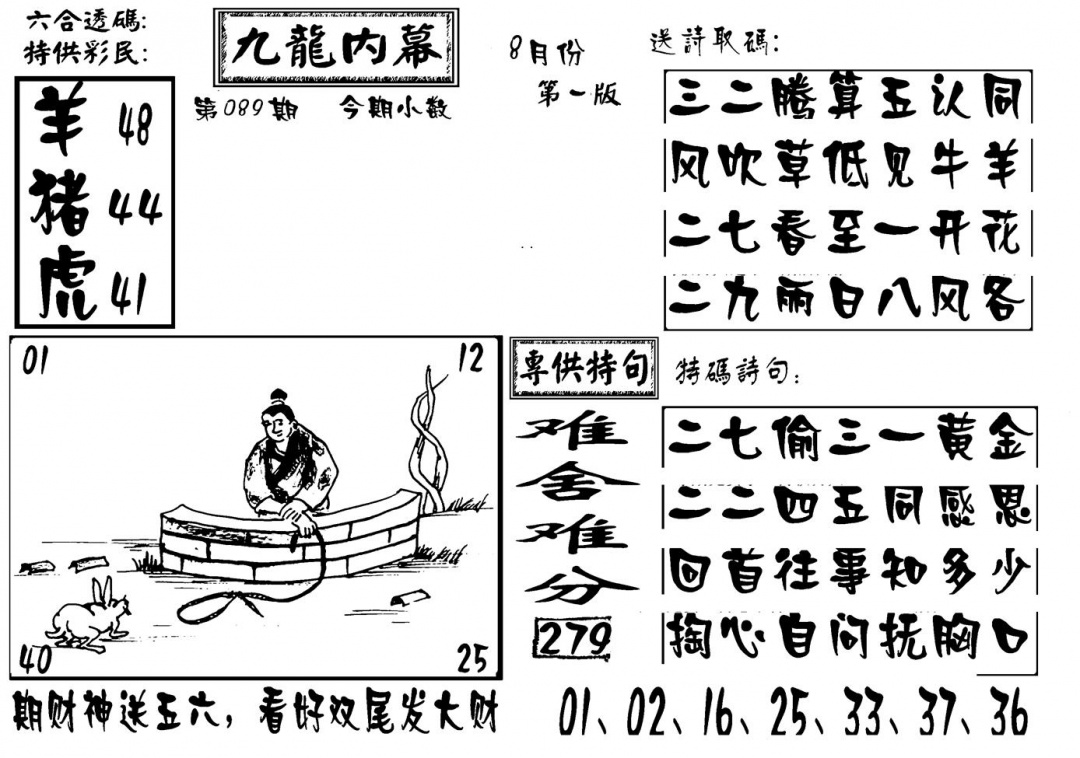 六合透碼:
特供彩民:
九龍内幕
第089期 今期小数
8月份
第一版
羊 48
猪 44
虎 41
送詩取碼:
三二腾算五认同
风吹草低见牛羊
二七春至一开花
二九雨日八风各
01 12
40 25
專供特句
难舍难分
279
特碼詩句:
二七偷三一黄金
二二四五同感恩
回首往事知多少
掏心自问抚胸口
期财神送五六，看好双尾发大财
01、02、16、25、33、37、36